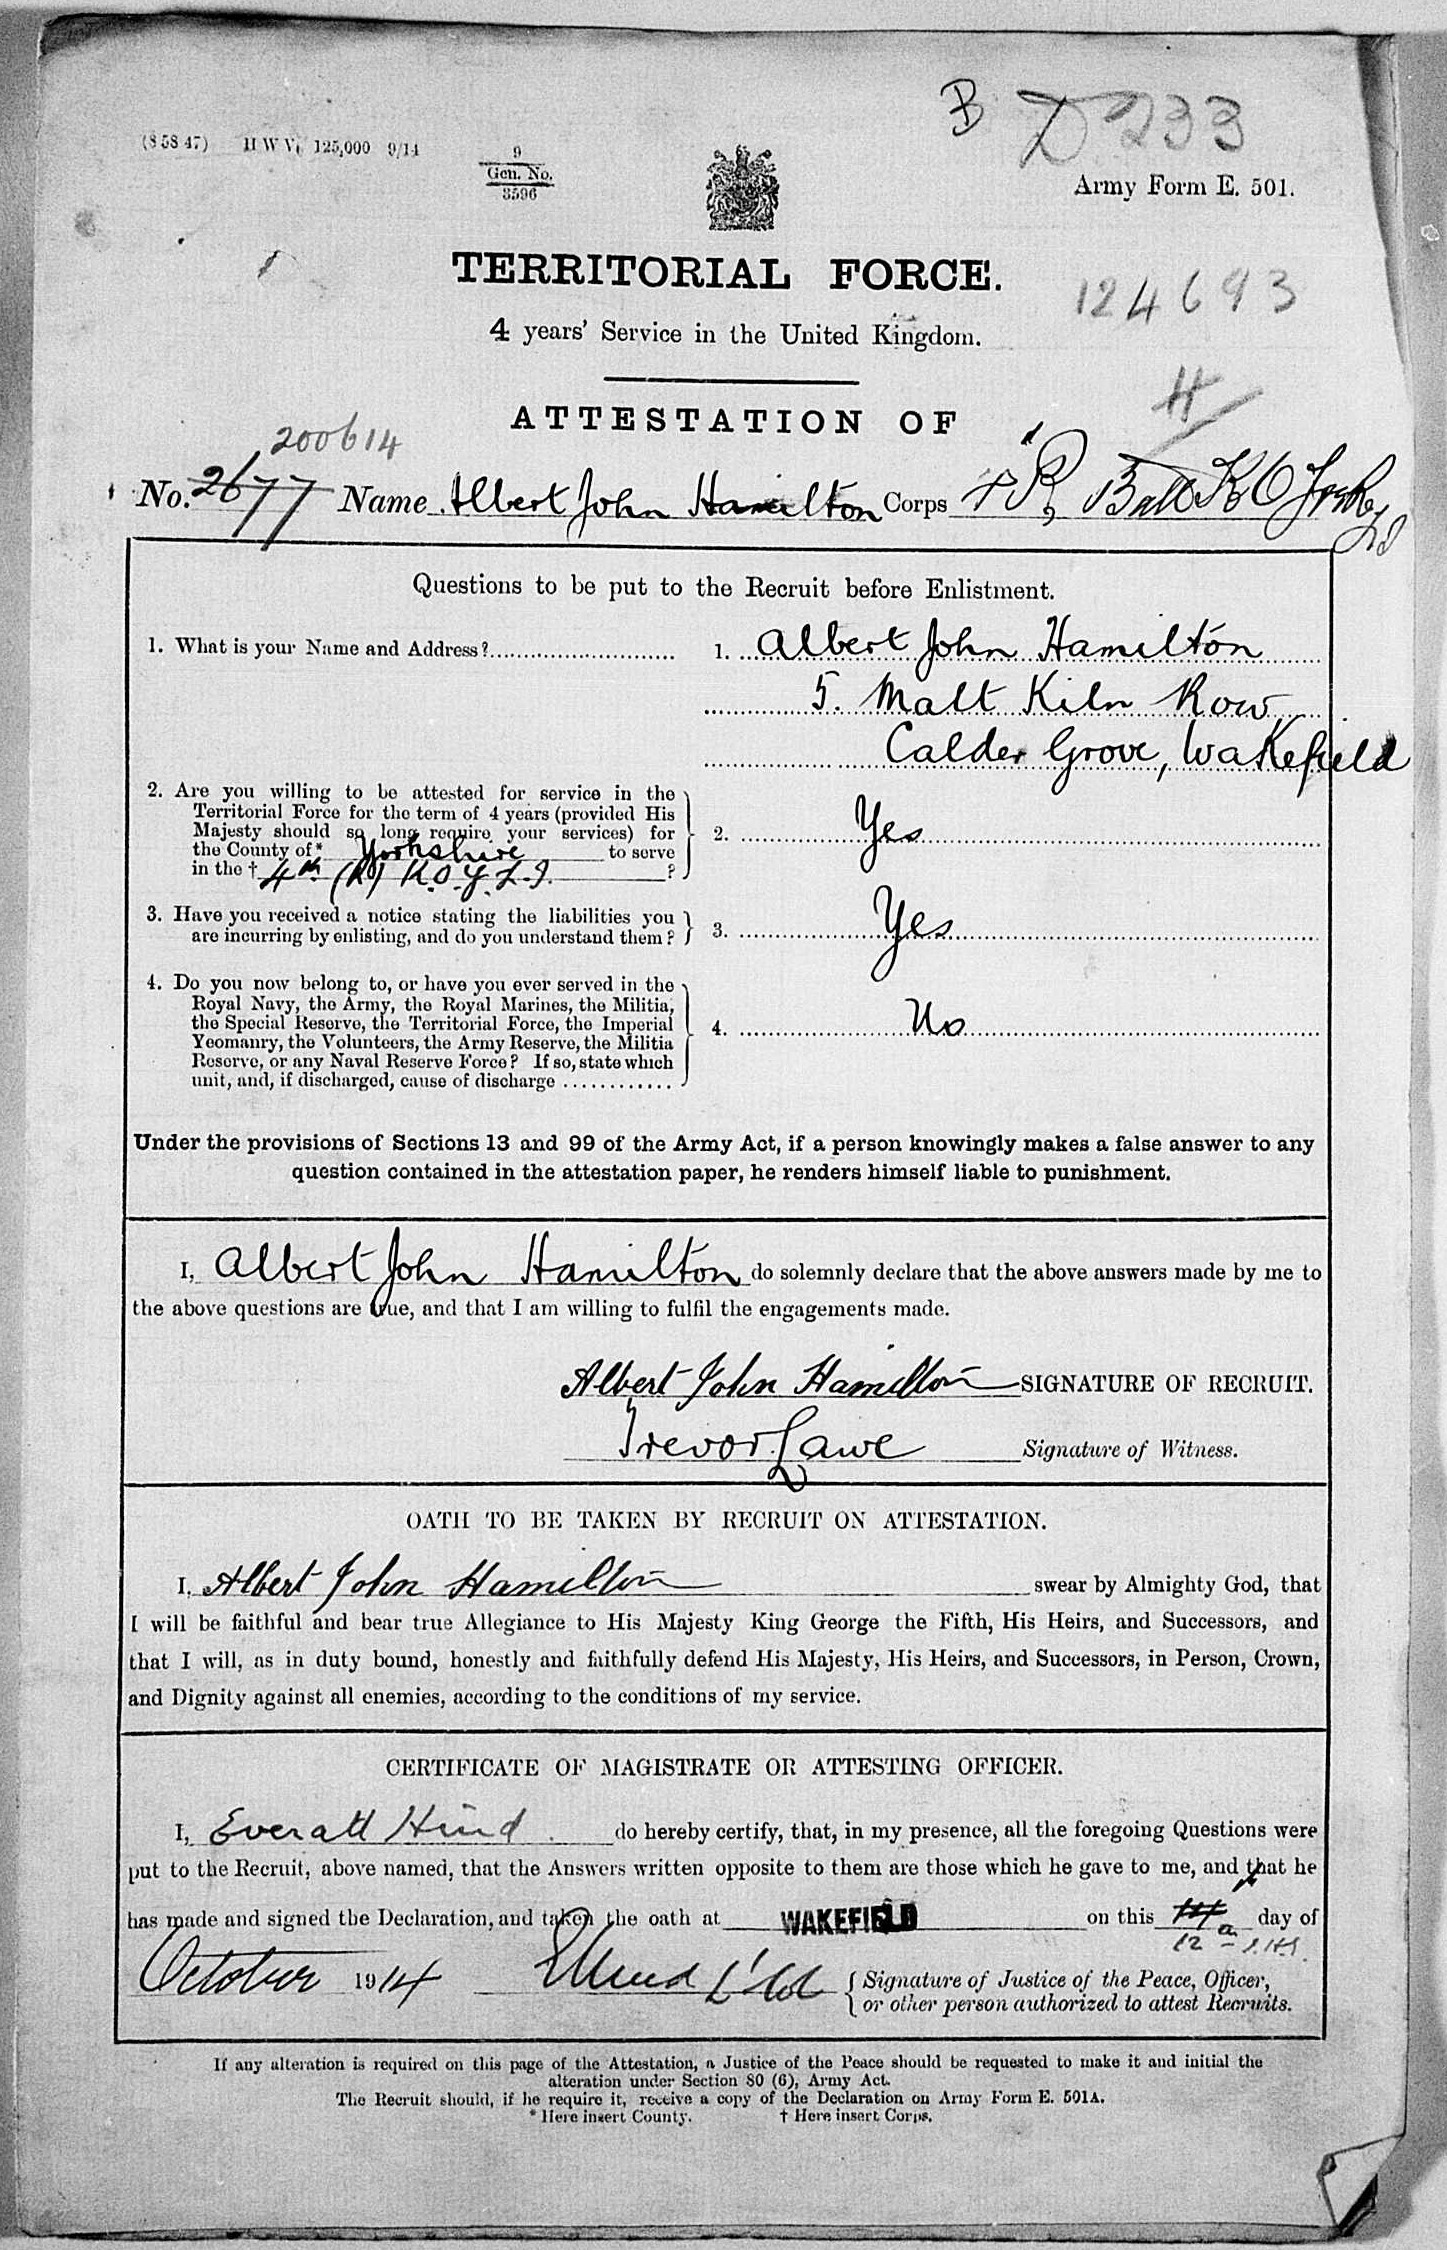 B D 233
(8 58 47) H W V 125,000 9/14
9
Gen. No.
3596
Army Form E. 501.
TERRITORIAL FORCE.
124693
4 years' Service in the United Kingdom.
ATTESTATION OF
200614
No. 2677 Name Albert John Hamilton Corps R Batt K O
Questions to be put to the Recruit before Enlistment.
1. What is your Name and Address? 1. Albert John Hamilton
5. Malt Kiln Row
Calder Grove, Wakefield
2. Are you willing to be attested for service in the
Territorial Force for the term of 4 years (provided His
Majesty should so long require your services) for
the County of* Yorkshire to serve
in the † 4th (R) K.O.Y.L.I. ?
2. Yes
3. Have you received a notice stating the liabilities you
are incurring by enlisting, and do you understand them?
3. Yes
4. Do you now belong to, or have you ever served in the
Royal Navy, the Army, the Royal Marines, the Militia,
the Special Reserve, the Territorial Force, the Imperial
Yeomanry, the Volunteers, the Army Reserve, the Militia
Reserve, or any Naval Reserve Force? If so, state which
unit, and, if discharged, cause of discharge
4. No
Under the provisions of Sections 13 and 99 of the Army Act, if a person knowingly makes a false answer to any
question contained in the attestation paper, he renders himself liable to punishment.
I, Albert John Hamilton do solemnly declare that the above answers made by me to
the above questions are true, and that I am willing to fulfil the engagements made.
Albert John Hamilton SIGNATURE OF RECRUIT.
Trevor Lawe Signature of Witness.
OATH TO BE TAKEN BY RECRUIT ON ATTESTATION.
I, Albert John Hamilton swear by Almighty God, that
I will be faithful and bear true Allegiance to His Majesty King George the Fifth, His Heirs, and Successors, and
that I will, as in duty bound, honestly and faithfully defend His Majesty, His Heirs, and Successors, in Person, Crown,
and Dignity against all enemies, according to the conditions of my service.
CERTIFICATE OF MAGISTRATE OR ATTESTING OFFICER.
I, Everatt Hind do hereby certify, that, in my presence, all the foregoing Questions were
put to the Recruit, above named, that the Answers written opposite to them are those which he gave to me, and that he
has made and signed the Declaration, and taken the oath at WAKEFIELD on this day of
12
October 1914 EHind Lt Col Signature of Justice of the Peace, Officer,
or other person authorized to attest Recruits.
If any alteration is required on this page of the Attestation, a Justice of the Peace should be requested to make it and initial the
alteration under Section 80 (6), Army Act.
The Recruit should, if he require it, receive a copy of the Declaration on Army Form E. 501A.
* Here insert County. † Here insert Corps.